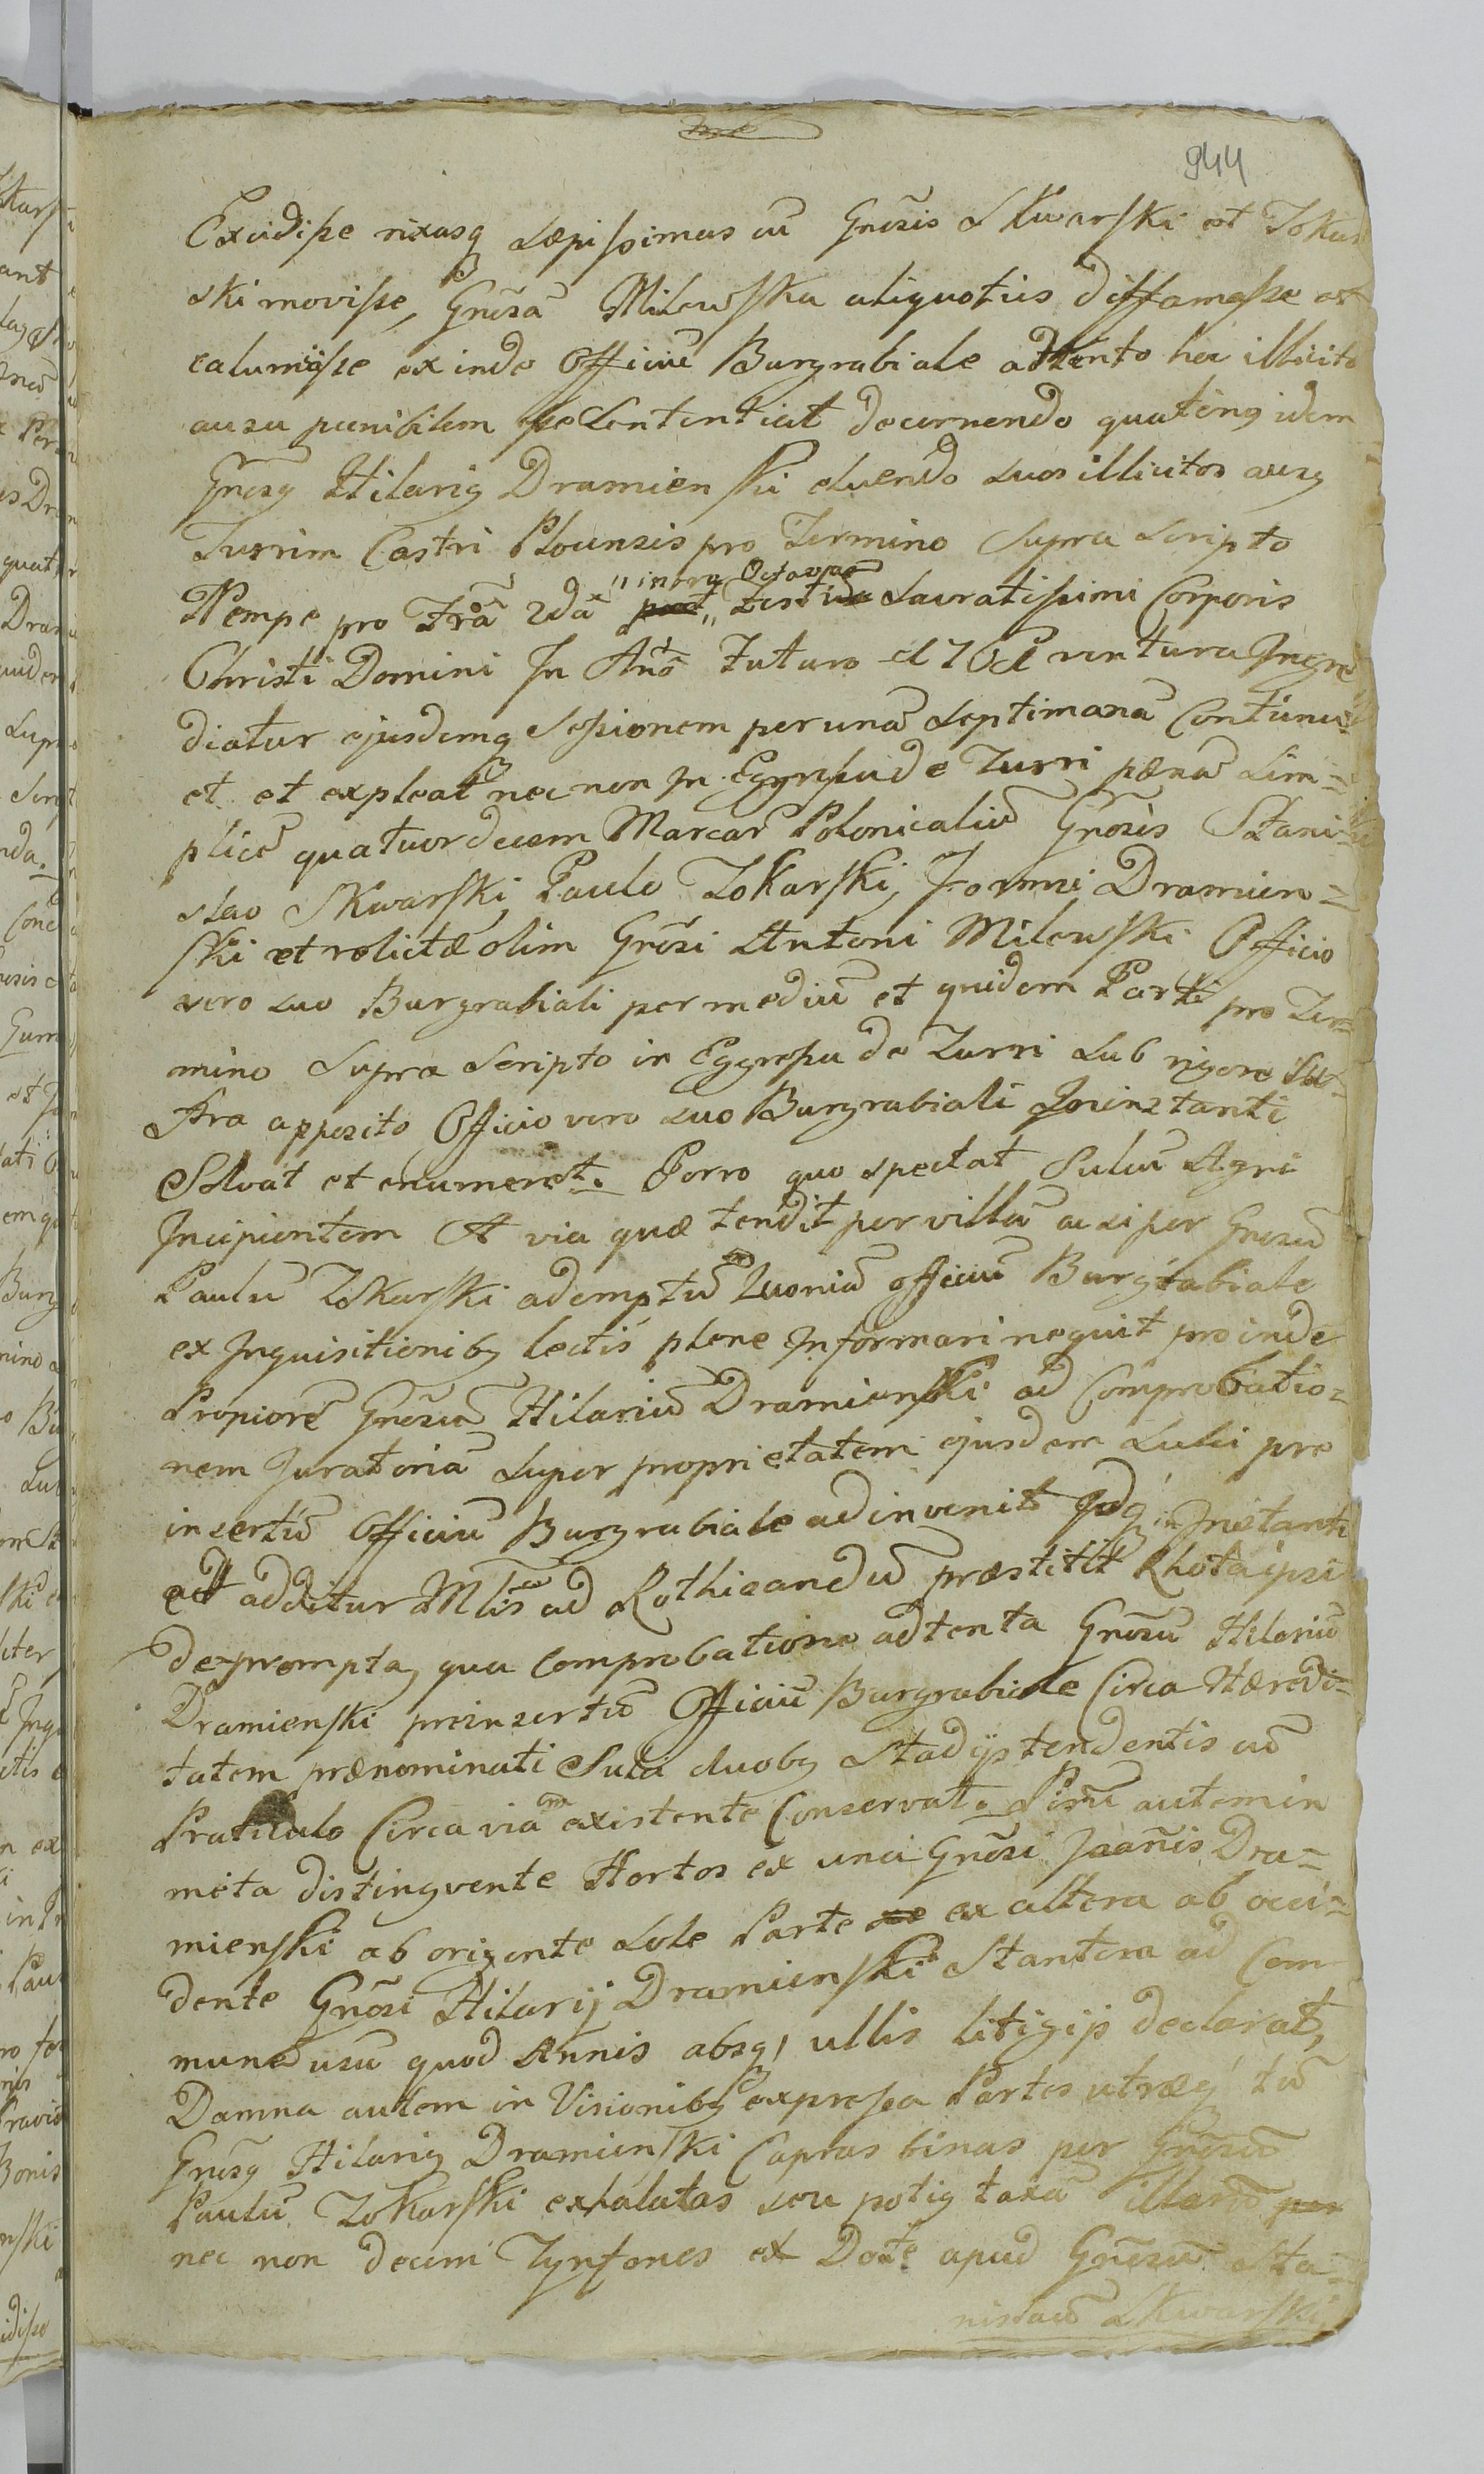 944
Excidisse rixasq sæpissimas cũ Gnosis Skwarski et Zokar
ski movisse, Gnosã Milewska aliquoties diffamasse et
calumiasse ex inde Officiũ Burgrabiale adtento hoc illicito
ausu punibilem sententiat decernendo quateng idem
Gnosg Hilarig Dramienski eluendo suos illicitos ausg
Turrim Castri Plocensis pro Termino supra scripto
Nempe pro Frã 2dã in org Octavas Festi Sacratissimi Corporis
Christi Domini In Anõ futuro ventura Ingre
diatur ejusdemq Sessionem per unã septimanã Continu=
et et expleat nec non In Egressu de Turri pænã sim=
plicẽ quatuordecem Marcar̃ Polonicaliũ Gnosis Stani=
slao Skwarski Paulo Zokarski, Dramien=
ski et relictæ olim Gnõsi Antoni Milewski Officio
vero suo Burgrabiali per mediũ et quidem Parti pro Ter=
mino supra scripto in Eggressu de Turri sub rigore In=
fra apposito Officio vero suo Burgrabiali Ininstanti
Solvat et enumeret. Porro quo spectat Sulcũ Agri
Incipientem A via quæ tendit per villã ac si per Gnosũ
Paulũ Zokarski ademptũ Quoniã officiũ Burgrabiale
ex Inquisitionibg lectis plene Informari nequit proinde
Propiorẽ Gnosũ Hilariũ Dramienski ad Comprobatio=
nem Juratoriã super proprietatem ejusdem Sulci pre
insertũ Officiũ Burgrabiale adinvenit Idq in Instanti
additur Mlis ad Rothisandũ præstitit Rhota ipsi
deprompta, qua Comprobatione adtenta Gnosũ Hilariũ
Dramienski preinsertũ Officiũ Burgrabiale Circa Hæredi=
tatem prænominati Sulci duobg Stadijs tendentis cũ
Praticulo Circa viam existente Conservat. Pirũ autem in
meta distingvente Hortos ex una Gnõsi Joanis Dra=
mienski ab origente Sole Parte ex altera ab occi=
dente Gnõsi Hilarij Dramienski Stantem ad Com
munẽ usũ quod Annis absq, ullis litigijs declarat,
Damna autem in Visionibg expressa Partes utræq tũ
Gnosg Hilarig Dramienski Capras binas per Gnõsũ
Paulũ Zokarski exhalatas seu potig taxã illarũ
nec non decim Tynfones ex Dote apud Gnõsũ Sta=
nislaũ Skwarski